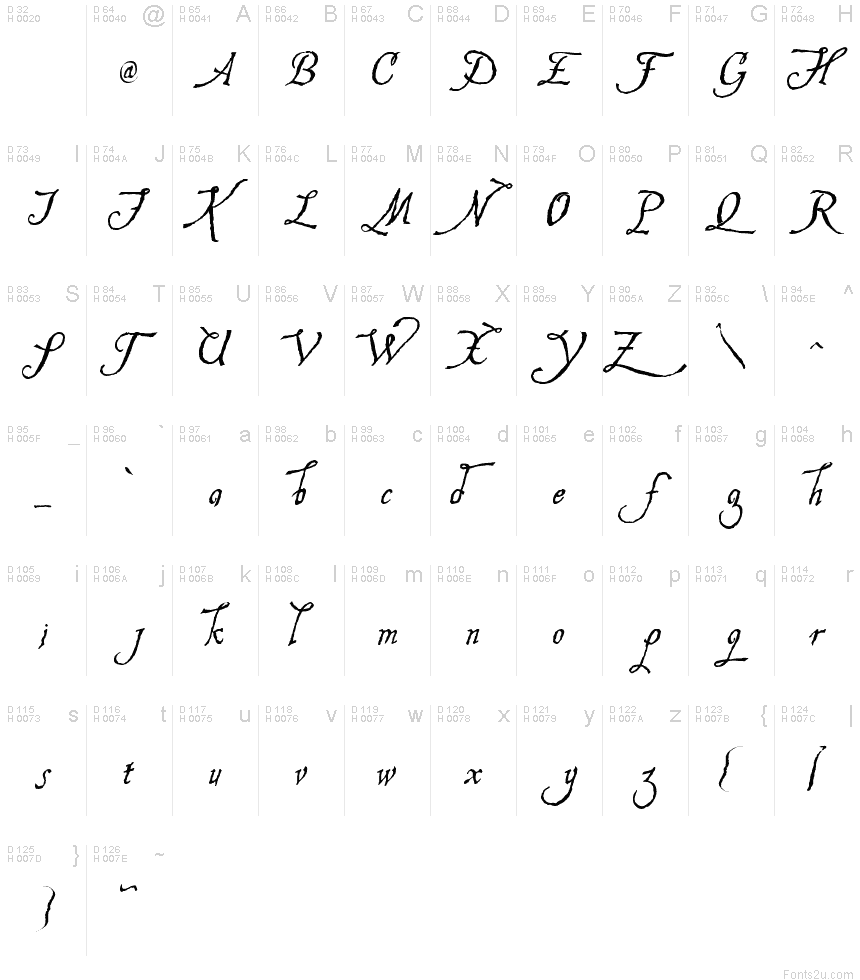 D 32 D 64 @ D 65 A D 66 B D 67 C D 68 D D 69 E D 70 F D 71 G D 72 H
H 0020 H 0040 H 0041 H 0042 H 0043 H 0044 H 0045 H 0046 H 0047 H 0048
@ A B C D E F G H
D 73 I D 74 J D 75 K D 76 L D 77 M D 78 N D 79 O D 80 P D 81 Q D 82 R
H 0049 H 004A H 004B H 004C H 004D H 004E H 004F H 0050 H 0051 H 0052
I J K L M N O P Q R
D 83 S D 84 T D 85 U D 86 V D 87 W D 88 X D 89 Y D 90 Z D 92 \ D 94 ^
H 0053 H 0054 H 0055 H 0056 H 0057 H 0058 H 0059 H 005A H 005C H 005E
S T U V W X Y Z \ ^
D 95 _ D 96 ` D 97 a D 98 b D 99 c D 100 d D 101 e D 102 f D 103 g D 104 h
H 005F H 0060 H 0061 H 0062 H 0063 H 0064 H 0065 H 0066 H 0067 H 0068
_ ` a b c d e f g h
D 105 i D 106 j D 107 k D 108 l D 109 m D 110 n D 111 o D 112 p D 113 q D 114 r
H 0069 H 006A H 006B H 006C H 006D H 006E H 006F H 0070 H 0071 H 0072
i j k l m n o p q r
D 115 s D 116 t D 117 u D 118 v D 119 w D 120 x D 121 y D 122 z D 123 { D 124 |
H 0073 H 0074 H 0075 H 0076 H 0077 H 0078 H 0079 H 007A H 007B H 007C
s t u v w x y z { |
D 125 } D 126 ~
H 007D H 007E
} ~
Fonts2u.com